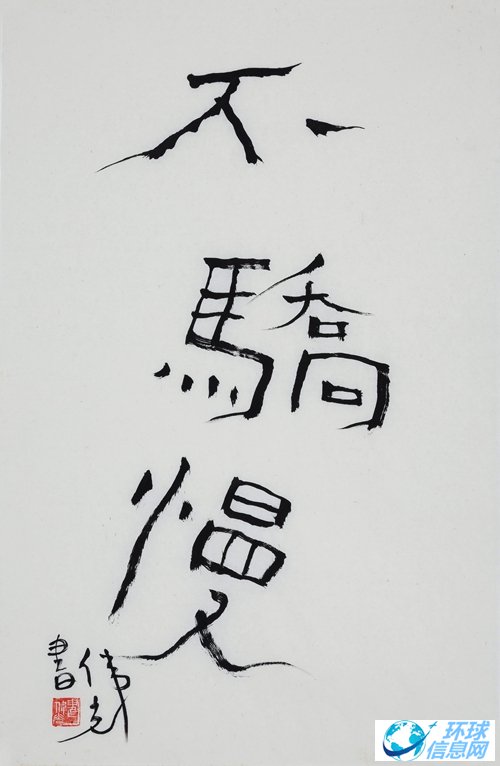 不驕慢
伟光
書
环球
信息网